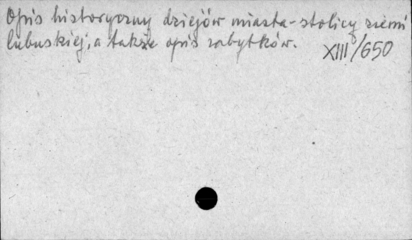 Opis historyczny dziejów miasta-stolicy ziemi
lubuskiej, a także opis zabytków.
XIII/650